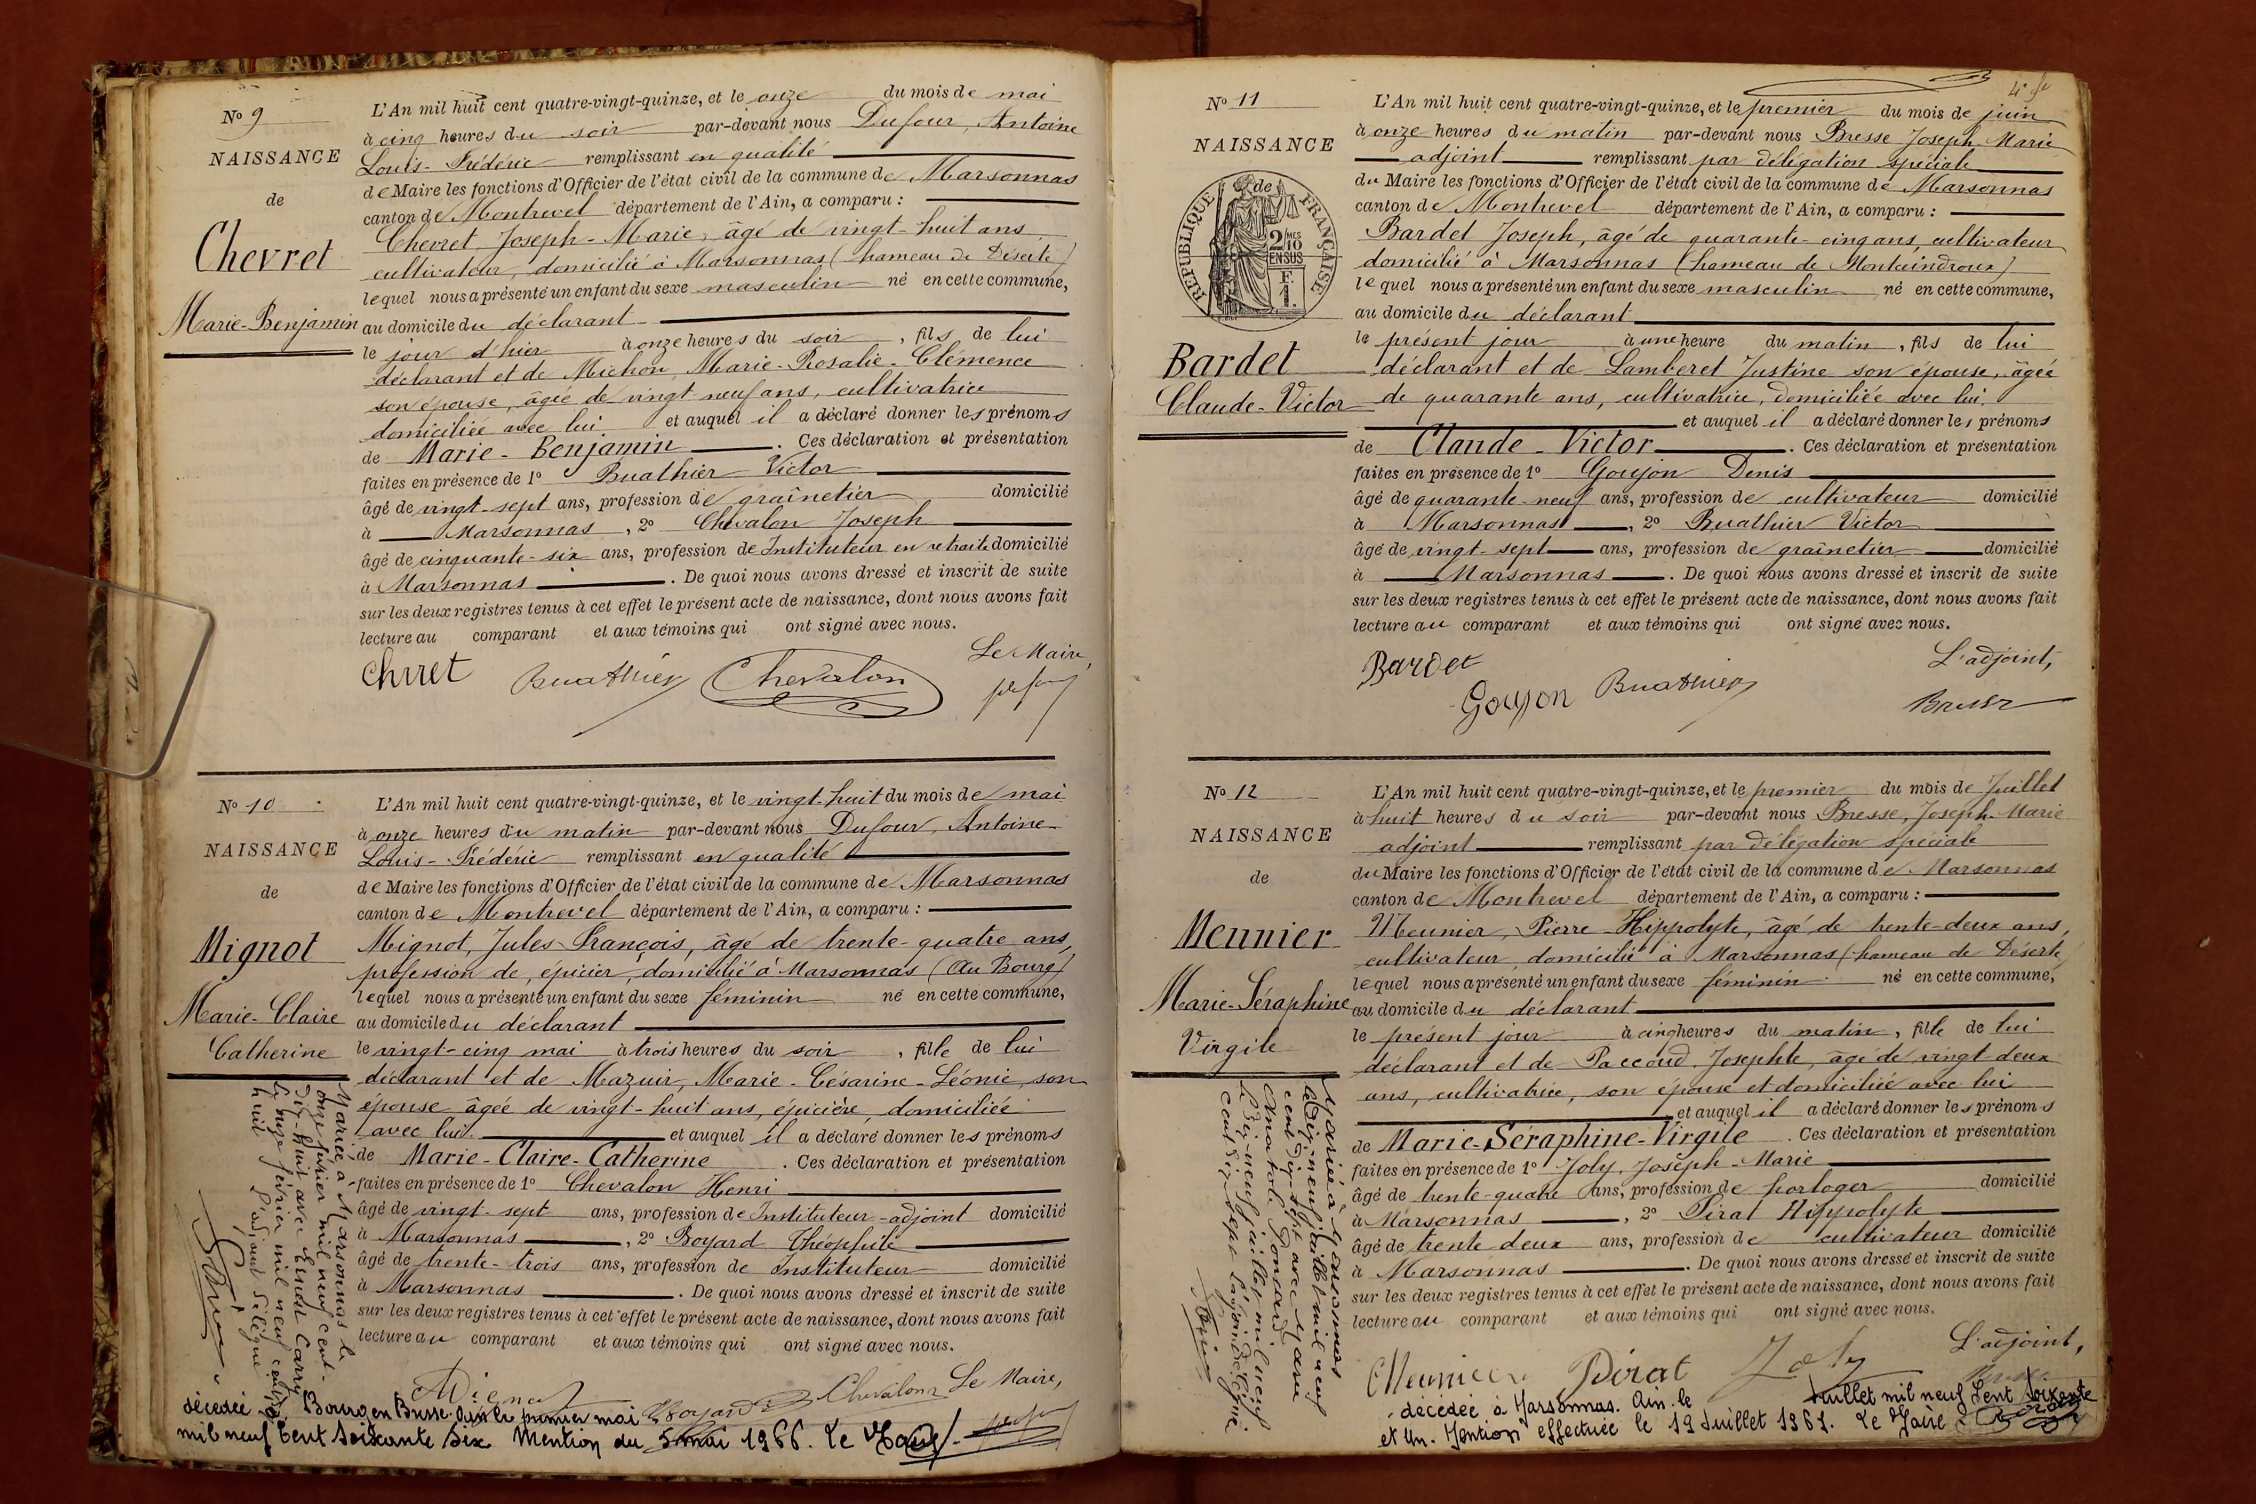 N° 9
NAISSANCE
de
Chevret
Marie-Benjamin
L'An mil huit cent quatre-vingt-quinze, et le onze du mois de mai
à cinq heures du soir par-devant nous Dufour, Antoine
Louis-Frédéric remplissant en qualité
de Maire les fonctions d'Officier de l'état civil de la commune de Marsonnas
canton de Montrevel département de l'Ain, a comparu :
Chevret Joseph-Marie, âgé de vingt-huit ans
cultivateur, domicilié à Marsonnas (hameau de Déserte)
lequel nous a présenté un enfant du sexe masculin né en cette commune,
au domicile du déclarant
le jour d'hier à onze heures du soir, fils de lui
déclarant et de Michon Marie-Rosalie-Clémence
son épouse, âgée de vingt neuf ans, cultivatrice
domiciliée avec lui et auquel il a déclaré donner les prénoms
de Marie-Benjamin. Ces déclaration et présentation
faites en présence de 1° Buathier Victor
âgé de vingt-sept ans, profession de grainetier domicilié
à Marsonnas, 2° Chevalon Joseph
âgé de cinquante-six ans, profession de Instituteur en retraite domicilié
à Marsonnas. De quoi nous avons dressé et inscrit de suite
sur les deux registres tenus à cet effet le présent acte de naissance, dont nous avons fait
lecture au comparant et aux témoins qui ont signé avec nous.
Le Maire,
Buathier Chevalon
N° 10
NAISSANCE
de
Mignot
Marie-Claire
Catherine
L'An mil huit cent quatre-vingt-quinze, et le vingt-huit du mois de mai
à onze heures du matin par-devant nous Dufour, Antoine
Louis-Frédéric remplissant en qualité
de Maire les fonctions d'Officier de l'état civil de la commune de Marsonnas
canton de Montrevel département de l'Ain, a comparu :
Mignot, Jules François, âgé de trente-quatre ans,
profession de, épicier, domicilié à Marsonnas (Au Bourg)
lequel nous a présenté un enfant du sexe féminin né en cette commune,
au domicile du déclarant
le vingt-cinq mai à trois heures du soir, fille de lui
déclarant et de Mazuir, Marie-Césarine-Léonie, son
épouse âgée de vingt-huit ans, épicière, domiciliée
avec lui. et auquel il a déclaré donner les prénoms
de Marie-Claire-Catherine. Ces déclaration et présentation
faites en présence de 1° Chevalon Henri
âgé de vingt-sept ans, profession de Instituteur-adjoint domicilié
à Marsonnas, 2° Boyard Théophile
âgé de trente-trois ans, profession de Instituteur domicilié
à Marsonnas. De quoi nous avons dressé et inscrit de suite
sur les deux registres tenus à cet effet le présent acte de naissance, dont nous avons fait
lecture au comparant et aux témoins qui ont signé avec nous.
Mariée à Marsonnas le
onze février mil neuf cent-
dix-huit avec
Le onze février mil neuf cent dix
huit L'adjoint délégué
Boyard Chevalon Le Maire,
décédée à Bourg en Bresse. Ain le premier mai
mil neuf Cent Soixante Six Mention du 5 mai 1966. Le Maire
N° 11
NAISSANCE
RÉPUBLIQUE FRANÇAISE
de
2/10 MES
EN SUS
F.
1.
Bardet
Claude-Victor
L'An mil huit cent quatre-vingt-quinze, et le premier du mois de juin
à onze heures du matin par-devant nous Bresse Joseph Marie
adjoint remplissant par délégation spéciale
du Maire les fonctions d'Officier de l'état civil de la commune de Marsonnas
canton de Montrevel département de l'Ain, a comparu :
Bardet Joseph, âgé de quarante-cinq ans, cultivateur
domicilié à Marsonnas (hameau de Montaindroux)
lequel nous a présenté un enfant du sexe masculin né en cette commune,
au domicile du déclarant
le présent jour à une heure du matin, fils de lui
déclarant et de Lamberet Justine son épouse, âgée
de quarante ans, cultivatrice, domiciliée avec lui.
et auquel il a déclaré donner les prénoms
de Claude-Victor. Ces déclaration et présentation
faites en présence de 1° Goujon Denis
âgé de quarante-neuf ans, profession de cultivateur domicilié
à Marsonnas, 2° Buathier Victor
âgé de vingt-sept ans, profession de grainetier domicilié
à Marsonnas. De quoi nous avons dressé et inscrit de suite
sur les deux registres tenus à cet effet le présent acte de naissance, dont nous avons fait
lecture au comparant et aux témoins qui ont signé avec nous.
L'adjoint,
Bardet
Goujon Buathier Bresse
N° 12
NAISSANCE
de
Meunier
Marie-Séraphine
Virgile
L'An mil huit cent quatre-vingt-quinze, et le premier du mois de Juillet
à huit heures du soir par-devant nous Bresse, Joseph-Marie
adjoint remplissant par délégation spéciale
du Maire les fonctions d'Officier de l'état civil de la commune de Marsonnas
canton de Montrevel département de l'Ain, a comparu :
Meunier, Pierre-Hippolyte, âgé de trente-deux ans,
cultivateur domicilié à Marsonnas (hameau de Déserte)
lequel nous a présenté un enfant du sexe féminin né en cette commune,
au domicile du déclarant
le présent jour à cinq heures du matin, fille de lui
déclarant et de Paccoud, Josephte, âgé de vingt-deux
ans, cultivatrice, son épouse et domiciliée avec lui
et auquel il a déclaré donner les prénoms
de Marie-Séraphine-Virgile. Ces déclaration et présentation
faites en présence de 1° Joly, Joseph-Marie
âgé de trente-quatre ans, profession de horloger domicilié
à Marsonnas, 2° Pirat Hippolyte
âgé de trente deux ans, profession de cultivateur domicilié
à Marsonnas. De quoi nous avons dressé et inscrit de suite
sur les deux registres tenus à cet effet le présent acte de naissance, dont nous avons fait
lecture au comparant et aux témoins qui ont signé avec nous.
Mariée à Marsonnas
le Dix neuf juillet mil neuf
cent dix-sept avec Marie
Anatole
Le Dix-neuf juillet mil neuf
cent dix-sept L'adjoint délégué
L'adjoint,
Meunier Pirat Joly
décédée à Marsonnas. Ain. le Juillet mil neuf Cent Soixante
et Un. Mention effectuée le 19 Juillet 1961. Le Maire